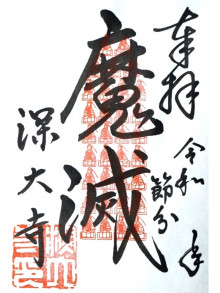 奉拝
令和
節分
魔滅
深大寺